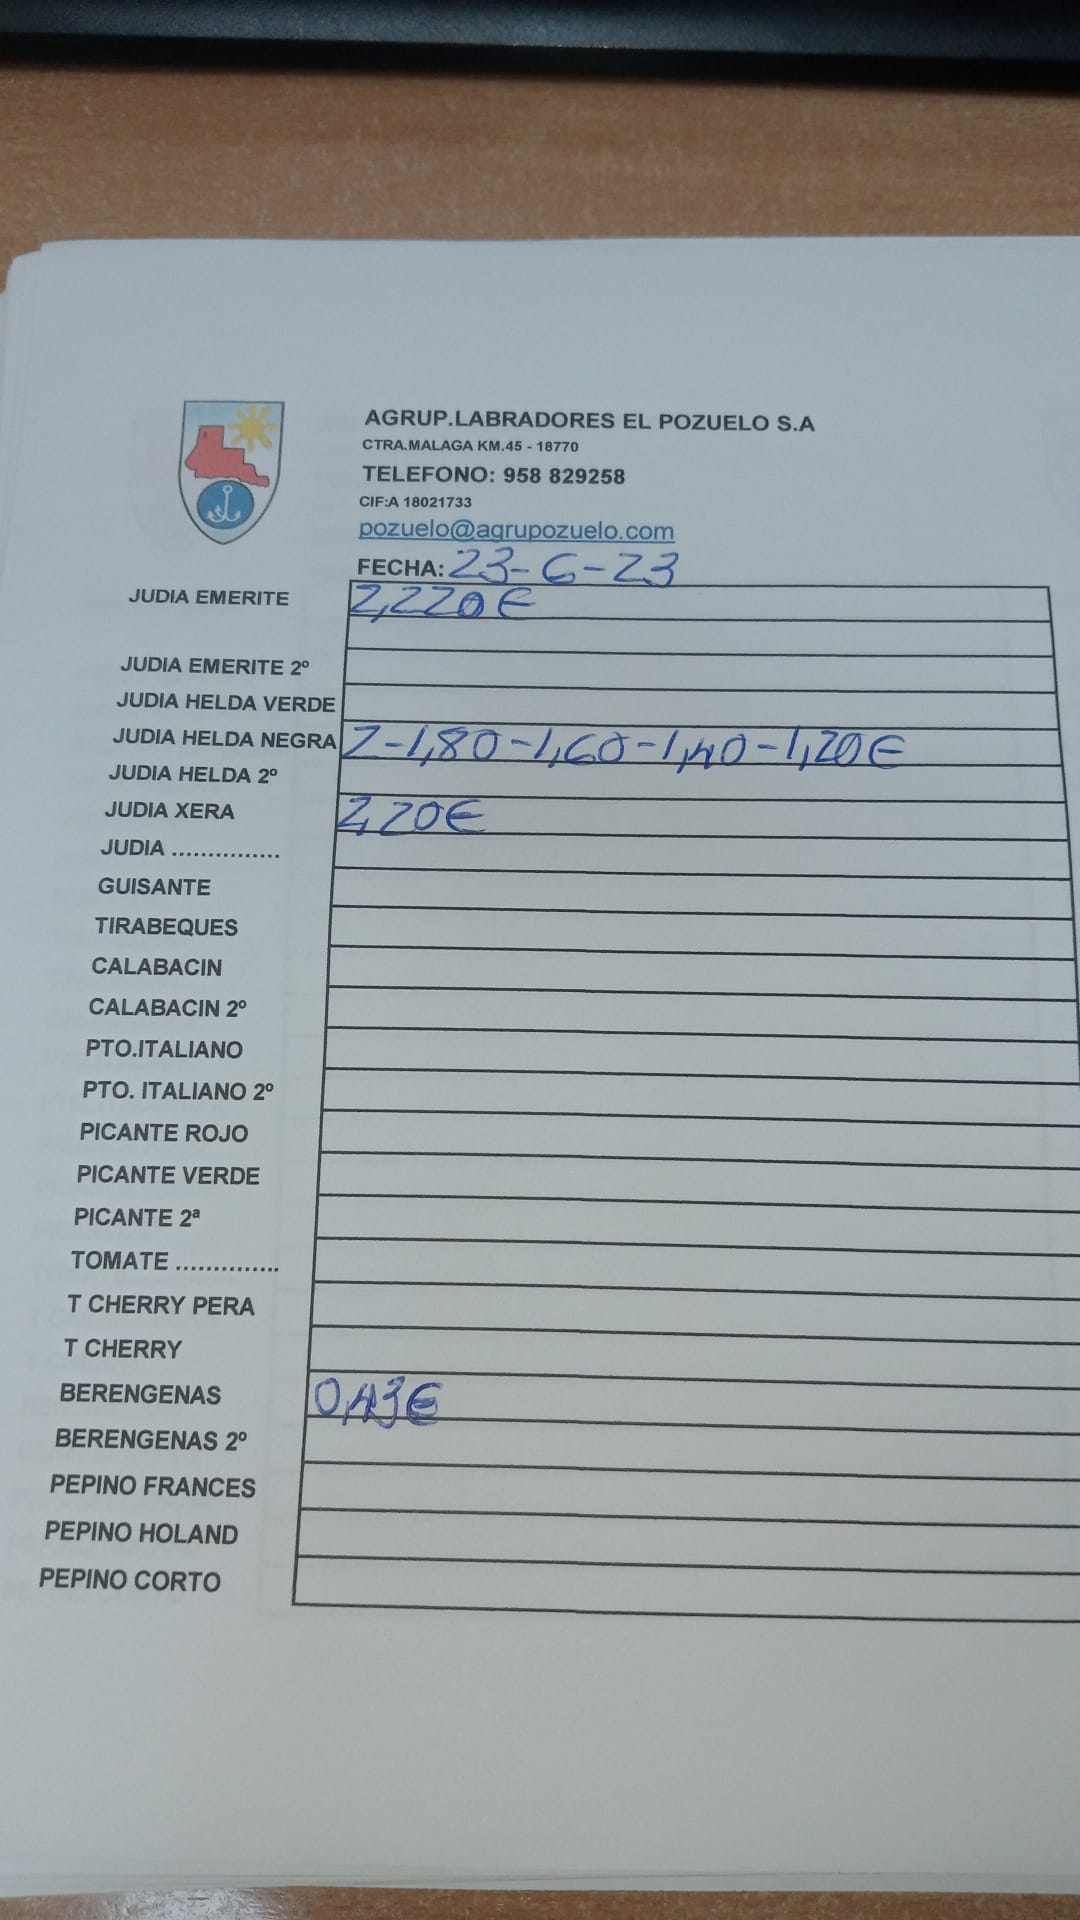 AGRUP.LABRADORES EL POZUELO S.A
CTRA.MALAGA KM.45 - 18770
TELEFONO: 958 829258
CIF:A 18021733
pozuelo@agrupozuelo.com
FECHA: 23-6-23
JUDIA EMERITE 2,220€
JUDIA EMERITE 2º
JUDIA HELDA VERDE
JUDIA HELDA NEGRA 2-1,80-1,60-1,40-1,20€
JUDIA HELDA 2º
JUDIA XERA 2,20€
JUDIA ...............
GUISANTE
TIRABEQUES
CALABACIN
CALABACIN 2º
PTO.ITALIANO
PTO. ITALIANO 2º
PICANTE ROJO
PICANTE VERDE
PICANTE 2ª
TOMATE ..............
T CHERRY PERA
T CHERRY
BERENGENAS 0,43€
BERENGENAS 2º
PEPINO FRANCES
PEPINO HOLAND
PEPINO CORTO